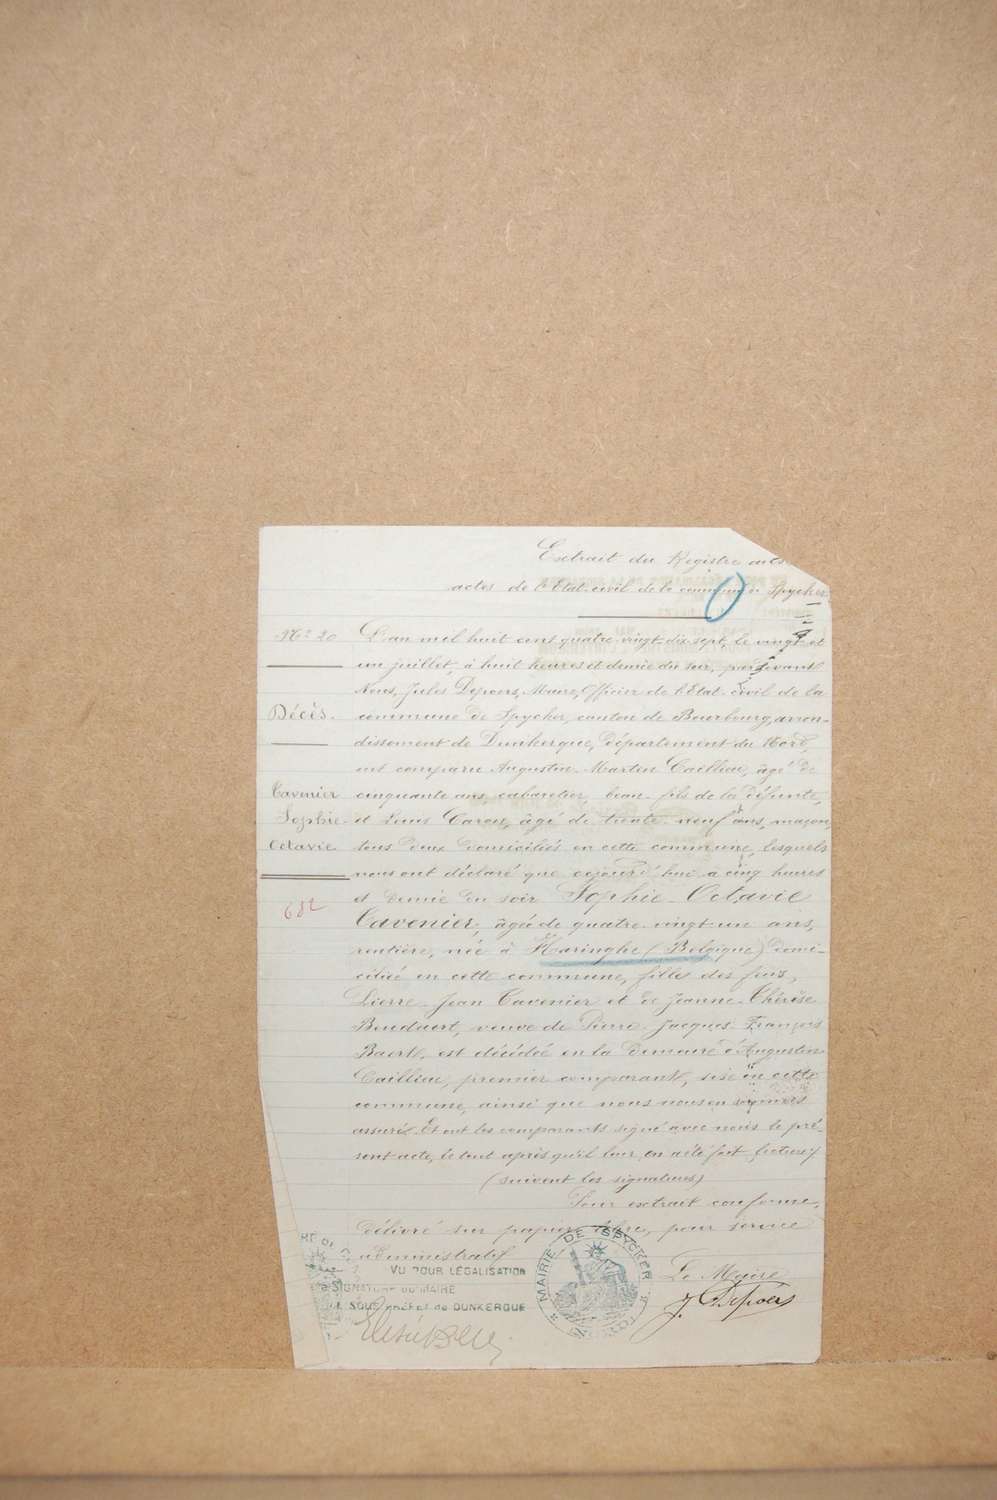 Extrait du Registre aux
actes de l'Etat-civil de la commune de Spycker.
No. 20
L'an mil huit cent quatre vingt dix sept, le vingt et
un juillet, à huit heures et demie du soir, par devant
Nous, Jules Depoers, Maire, Officier de l'Etat-civil de la
Décès.
commune de Spycker, canton de Bourbourg, arron-
dissement de Dunkerque, département du Nord,
ont comparu Augustin-Martin Cailliau, âgé de
Cavenier
cinquante ans, cabaretier, beau-fils de la défunte,
Sophie-
et Louis Caron, âgé de trente neuf ans, maçon,
Octavie
tous deux domiciliés en cette commune, lesquels
nous ont déclaré que cejourd'hui à cinq heures
682
et demie du soir Sophie-Octavie
Cavenier, âgée de quatre vingt-un ans,
rentière, née à Haringhe (Belgique) domi-
ciliée en cette commune, fille des feus,
Pierre-Jean Cavenier et de Jeanne-Thérèse
Boudaert, veuve de Pierre-Jacques-François
Baert, est décédée en la demeure d'Augustin
Cailliau, premier comparant, sise en cette
commune, ainsi que nous nous en sommes
assuré. Et ont les comparants signé avec nous le pré-
sent acte, le tout après qu'il leur en a été fait lecture
(suivent les signatures)
Pour extrait conforme,
délivré sur papier libre, pour service
administratif
VU POUR LÉGALISATION
SIGNATURE DU MAIRE
LE SOUS préfet de DUNKERQUE
MAIRIE DE SPYCKER
Le Maire
J. Depoers